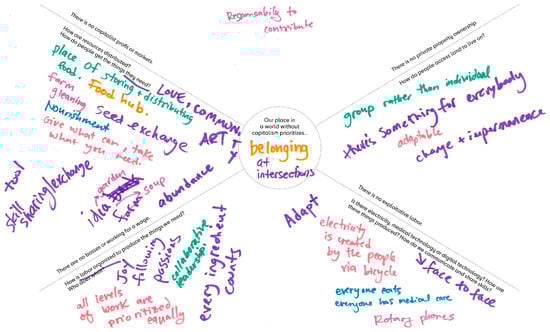 Responsability to
contribute
There is no capitalist profit or markets.
How are resources distributed?
How do people get the things they need?
place of storing + distributing
food.
Food hub.
farm
gleaning
Nourishment
Seed exchange
Give what can, take
what you need.
LOVE, COMMUNITY
ART
tool
skill
sharing/exchange
garden
idea
focus
soup
abundance
Our place in
a world without
capitalism prioritizes...
belonging
at
intersections
There is no private property ownership.
How do people access land to live on?
group rather than individual
there's something for everybody
adaptable
change + impermanence
There are no bosses or working for a wage.
How is labor organized to produce the things we need?
Who
Joy
following
passions
collaborative
leadership
every ingredient
counts
all levels
of work are
prioritized
equally
There is no exploitative labor.
Is there electricity, medical technology or digital technology? How are
these things produced? How do we communicate and share skills?
Adapt
face to face
electricity
is created
by the people
via bicycle
everyone eats
everyone has medical care
Rotary phones